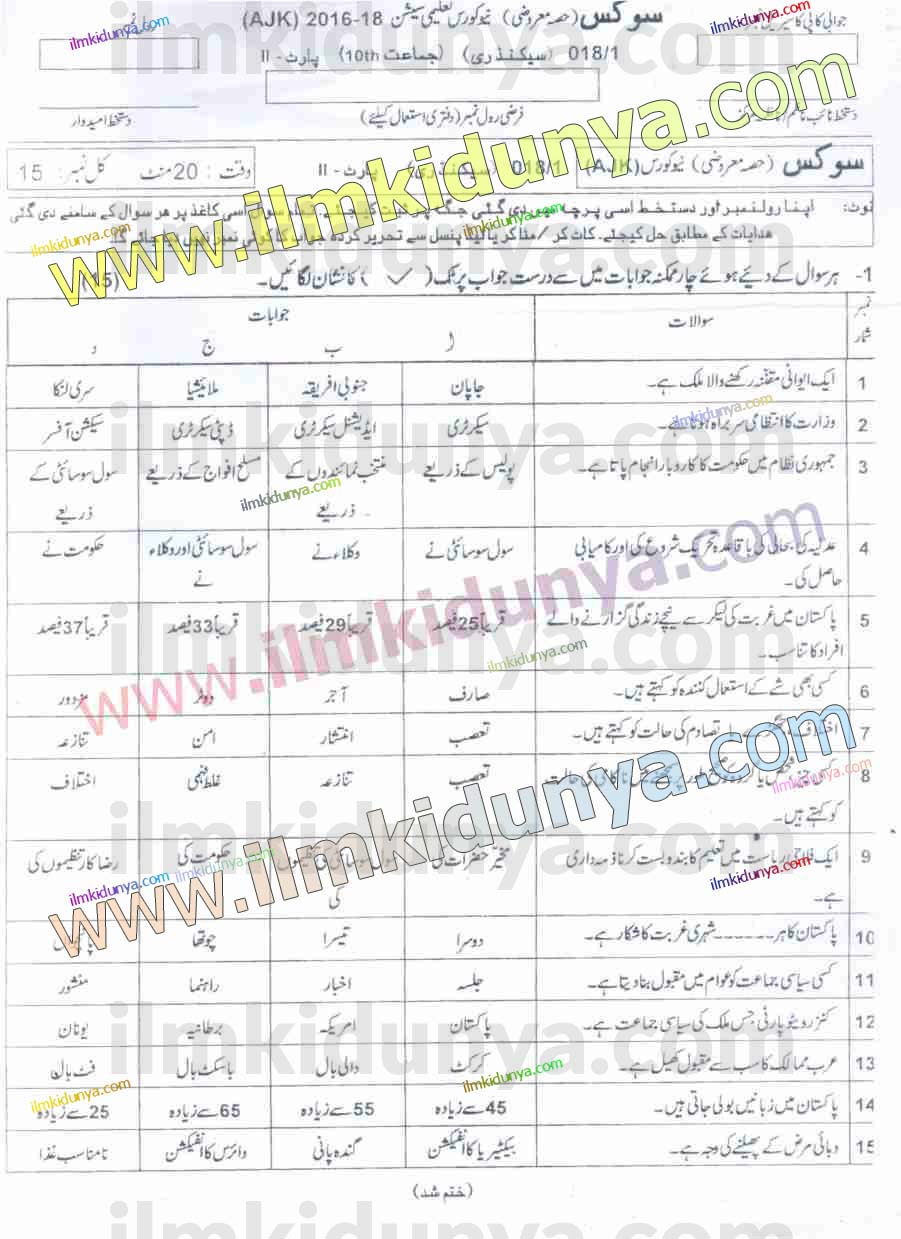 سوکس (حصہ معروضی) نیو کورس تعلیمی سیشن 2016-18 (AJK)
018/1 (سیکنڈری) (جماعت 10th) پارٹ - II
دستخط امیدوار
فرضی رول نمبر (دفتری استعمال کیلئے)
سوکس (حصہ معروضی) نیو کورس (AJK) 018/1 (سیکنڈری) پارٹ - II
وقت : 20 منٹ کل نمبر : 15
نوٹ: اپنا رولنمبر اور دستخط اسی پرچہ میں دی گئی جگہ پر ثبت کیجئے۔ تمام سوال اسی کاغذ پر ھر سوال کے سامنے دی گئی
ھدایات کے مطابق حل کیجئے۔ کاٹ کر / مٹا کر یا لیڈ پنسل سے تحریر کردہ جواب کا کوئی نمبر نہیں دیا جائے گا۔
1- ہر سوال کے دئیے ہوئے چار ممکنہ جوابات میں سے درست جواب پر ٹک ( ✓ ) کا نشان لگائیں۔ (15)
نمبر شمار سوالات جوابات
ا ب ج د
1 ایک ایوانی مقننہ رکھنے والا ملک ہے۔ جاپان جنوبی افریقہ ملائیشیا سری لنکا
2 وزارت کا انتظامی سربراہ ہوتا ہے۔ سیکرٹری ایڈیشنل سیکرٹری ڈپٹی سیکرٹری سیکشن آفسر
3 جمہوری نظام میں حکومت کا کاروبار انجام پاتا ہے۔ پولیس کے ذریعے منتخب نمائندوں کے ذریعے۔ مسلح افواج کے ذریعے سول سوسائٹی کے ذریعے
4 عدلیہ کی بحالی کی باقاعدہ تحریک شروع کی اور کامیابی حاصل کی۔ سول سوسائٹی نے وکلاء نے سول سوسائٹی اور وکلاء نے حکومت نے
5 پاکستان میں غربت کی لیکر سے نیچے زندگی گزارنے والے افراد کا تناسب۔ قریباً 25 فیصد قریباً 29 فیصد قریباً 33 فیصد قریباً 37 فیصد
6 کسی بھی شے کے استعمال کنندہ کو کہتے ہیں۔ صارف آجر ووٹر مزدور
7 اختلاف یا تصادم کی حالت کو کہتے ہیں۔ تعصب انتشار امن تنازعہ
8 کسی چیز، شخص یا گروہ کو صحیح طور پر سمجھنے میں ناکامی کی حالت کو کہتے ہیں۔ تعصب تنازعہ غلط فہمی اختلاف
9 ایک فلاحی ریاست میں تعلیم کا بندوبست کرنا ذمہ داری ہے۔ مخیر حضرات کی سول سوسائٹی کی تنظیموں کی حکومت کی رضا کار تنظیموں کی
10 پاکستان کا ہر ------ شہری غربت کا شکار ہے۔ دوسرا تیسرا چوتھا پانچواں
11 کسی سیاسی جماعت کو عوام میں مقبول بنا دیتا ہے۔ جلسہ اخبار راہنما منشور
12 کنزرویٹو پارٹی جس ملک کی سیاسی جماعت ہے۔ پاکستان امریکہ برطانیہ یونان
13 عرب ممالک کا سب سے مقبول کھیل ہے۔ کرکٹ والی بال باسکٹ بال فٹ بال
14 پاکستان میں زبانیں بولی جاتی ہیں۔ 45 سے زیادہ 55 سے زیادہ 65 سے زیادہ 25 سے زیادہ
15 وبائی مرض کے پھیلنے کی وجہ ہے۔ بیکٹیریا کا انفیکشن گندہ پانی وائرس کا انفیکشن نامناسب غذا
(ختم شد)
www.ilmkidunya.com
www.ilmkidunya.com
www.ilmkidunya.com
ilmkidunya.com